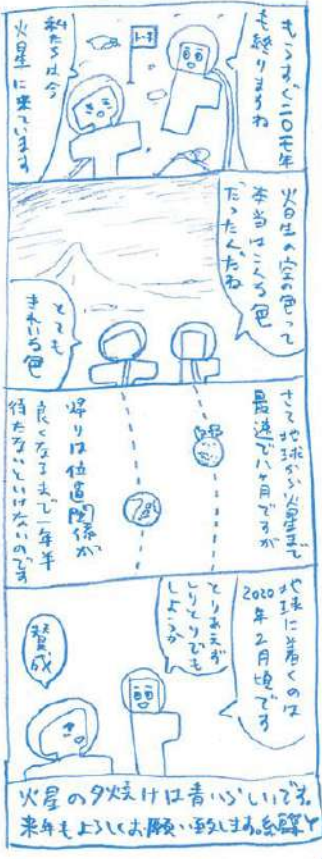 もうすぐ二〇一七年
も終りますね
トーキ
私たちは今
火星に来ています
火星の空の色って
本当はこんな色
だったんだね
とても
きれいな色
さて地球から火星まで
最速で八ヶ月ですが
帰りは位置関係が
良くなるまで一年半
待たないといけないのです
地球に着くのは
2020年2月頃です
とりあえず
しりとりでも
しようか
賛成
火星の夕焼けは青いらしいです。
来年もよろしくお願い致します。